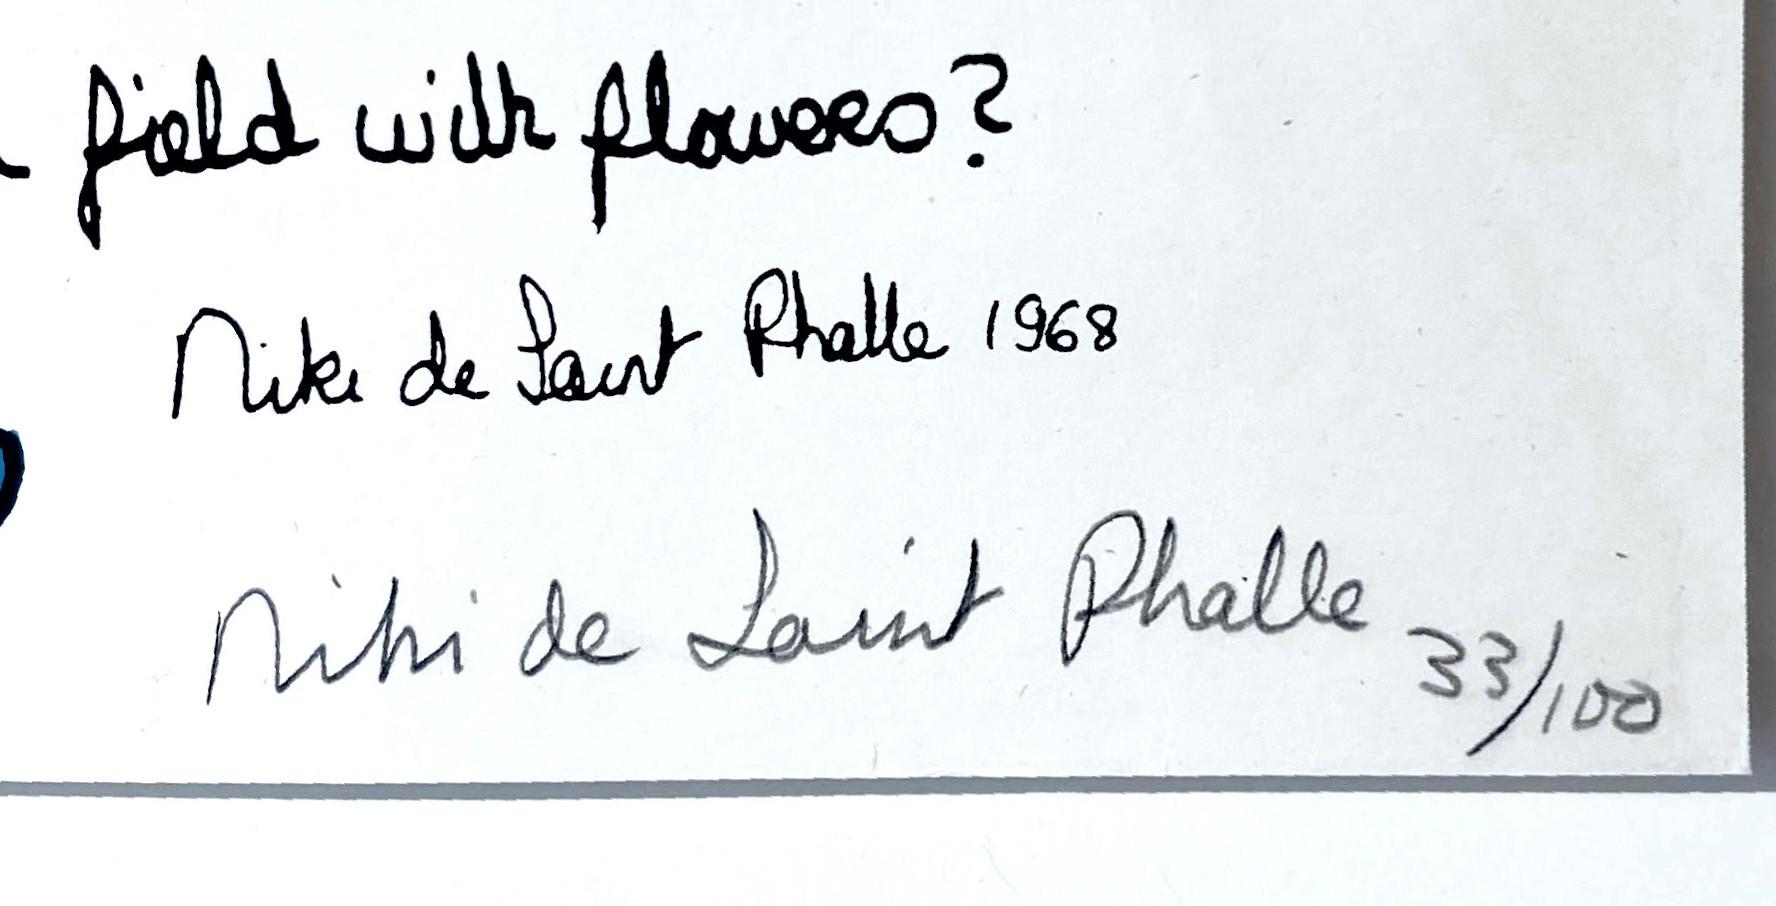 field with flowers?
Niki de Saint Phalle 1968
Niki de Saint Phalle 33/100